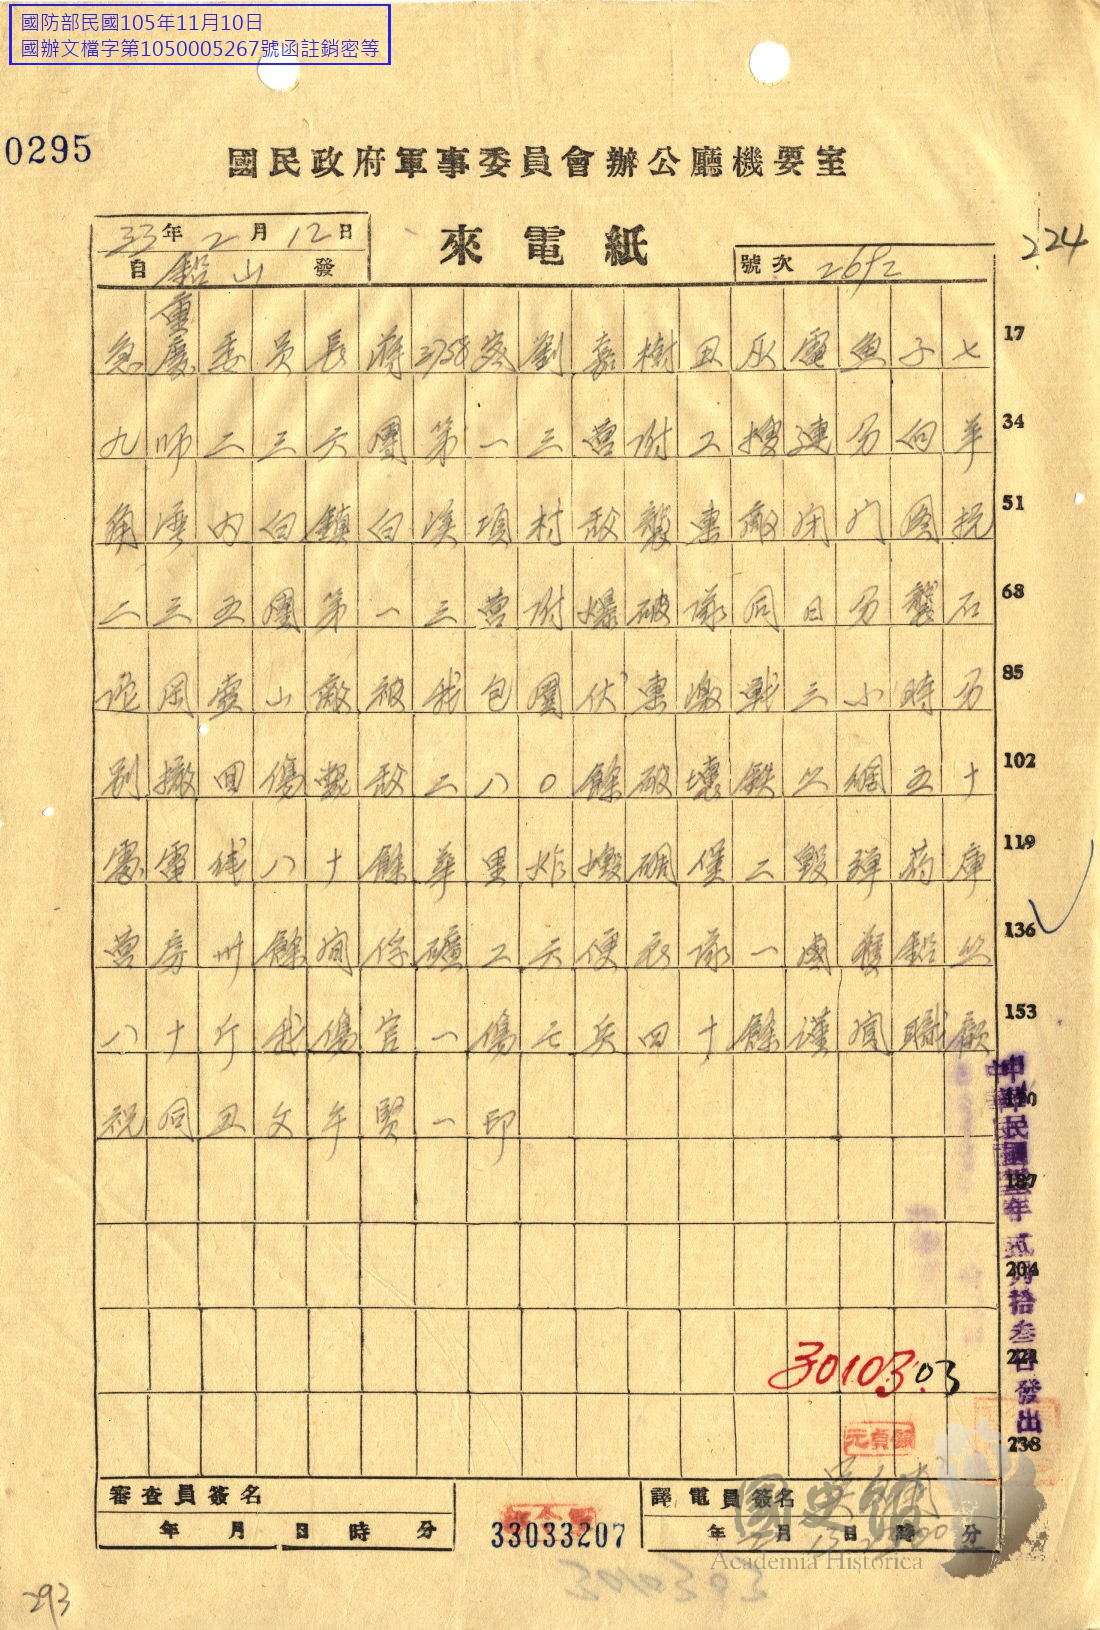 國防部民國105年11月10日
國辦文檔字第1050005267號函註銷密等
0295
國民政府軍事委員會辦公廳機要室
來電紙
33年2月12日
自鉛山發
號次 2692
224
急重慶委員長蔣3758密劉嘉樹丑灰電魚子七 17
九師二三六團第一三營附工搜連分向羊 34
角 內白鎮白溪項村敵襲 敵 門 抗 51
二三五團第一三營附爆破隊同日分襲石 68
岡壺山敵被我包圍伏 激戰三小時分 85
別撤回傷斃敵二八〇餘破壞鉄絲網五十 102
電线八十餘華里炸燬碉堡二毀彈葯庫 119
營房卅餘間俘礦工六便衣隊一鹵獲鉛絲 136
八十斤我傷官一傷亡兵四十餘謹聞職顧 153
祝同丑文午賢一印
170
187
204
221
238
中華民國 年貳月拾叁日發出
30103.03
審查員簽名
年 月 日 時 分
33033207
譯電員簽名
年 2月13日 時 分
國史館
Academia Historica
3010303
293